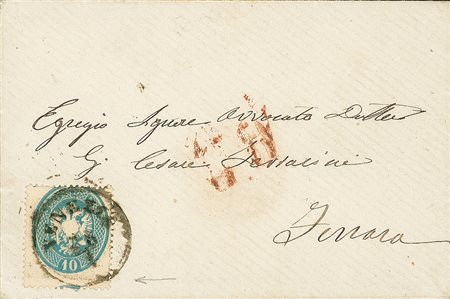 Egregio Signore Avvocato Dottore
G. Cesare
Ferrara
VENEZIA
10